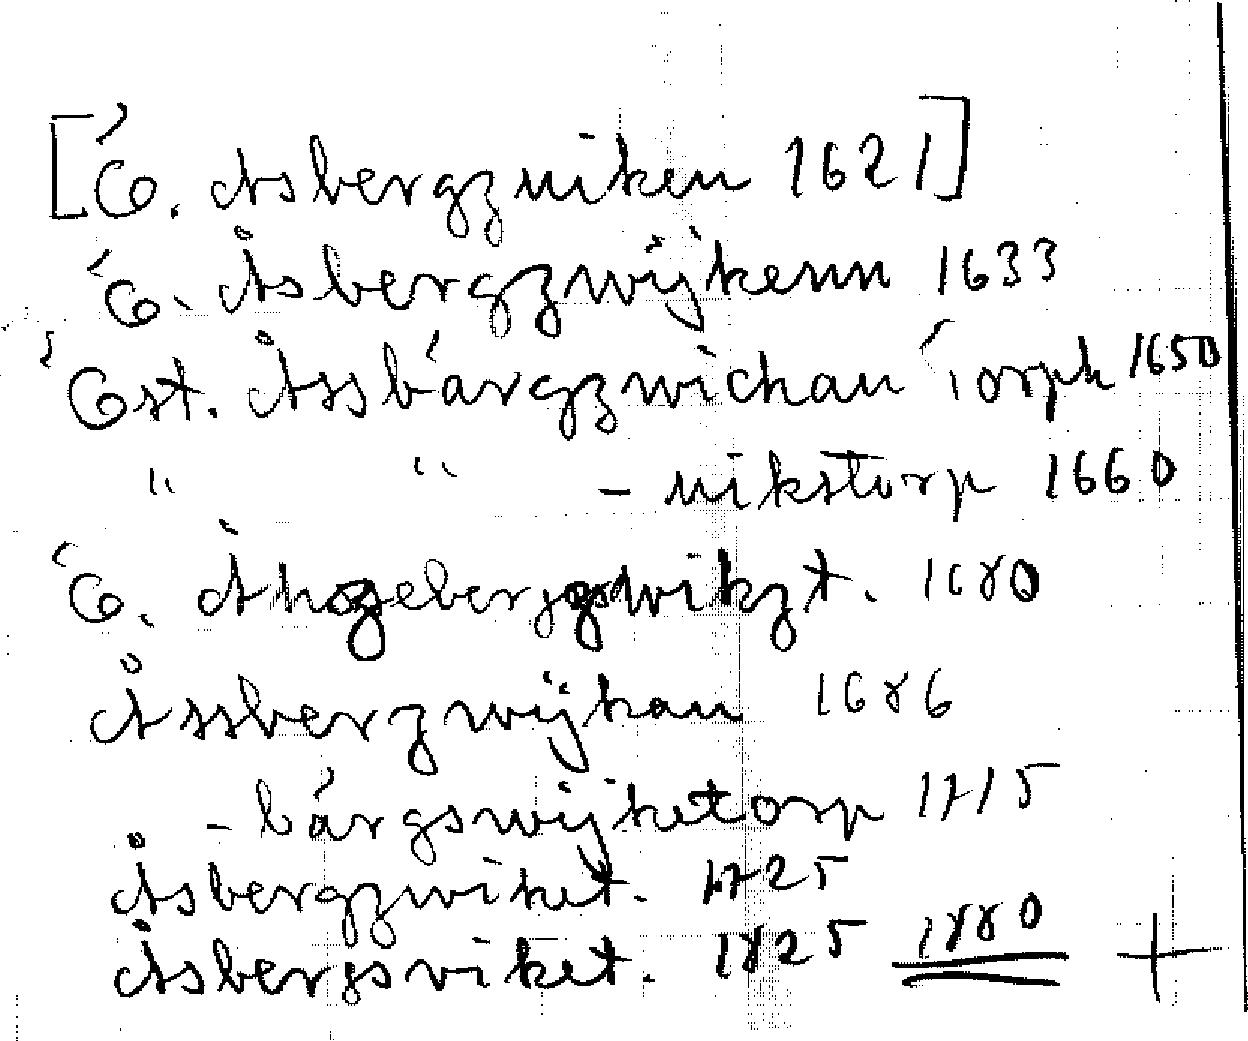 [Ö. Asbergzuiken 1621]
Ö. Åsbergzwijkenn 1633
Öst. Åssbärgzwichan Torph 1650
" " - uikstorp 1660
Ö. wikzt. 1680
Åssbergzwijkan 1686
- bärgswijketorp 1715
Åsbergzwiket. 1725
Åsbergsviket. 1825 1880 +